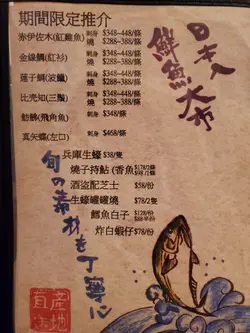 期間限定推介
赤伊佐木(紅雞魚) 刺身 $348-448/條
燒 $288-388/條
金線鯛(紅衫) 刺身 $348-448/條
燒 $288-388/條
蓮子鯛(波鱲) 刺身 $348-448/條
燒 $288-388/條
比売知(三鬚) 刺身 $348-448/條
燒 $288-388/條
魴鮄(飛角魚) 刺身 $348-448/條
燒 $288-388/條
真矢蝶(左口) 刺身 $468/條
日本入
鮮魚大市
兵庫生蠔 $38/隻
燒子持鮎(香魚) $178/2條
$98/1條
酒盗配芝士 $58/份
生蠔罐罐燒 $78/2隻
鱈魚白子 $128/份
$88/半份
炸白蝦仔 $78/份
旬の素材を丁寧に
産地
直送